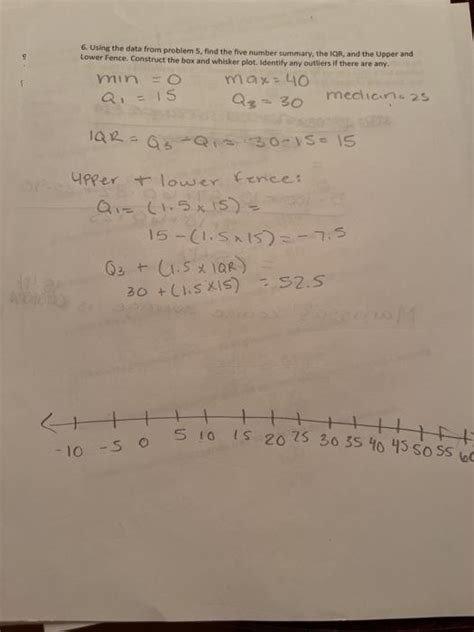 6. Using the data from problem 5, find the five number summary, the IQR, and the Upper and
Lower Fence. Construct the box and whisker plot. Identify any outliers if there are any.
min = 0 max = 40
Q1 = 15 Q3 = 30 median = 25
IQR = Q3 - Q1 = 30-15 = 15
Upper + lower fence:
Q1 = (1.5 x 15) =
15 - (1.5 x 15) = - 7.5
Q3 + (1.5 x IQR) =
30 + (1.5 x 15) = 52.5
-10 -5 0 5 10 15 20 25 30 35 40 45 50 55 60